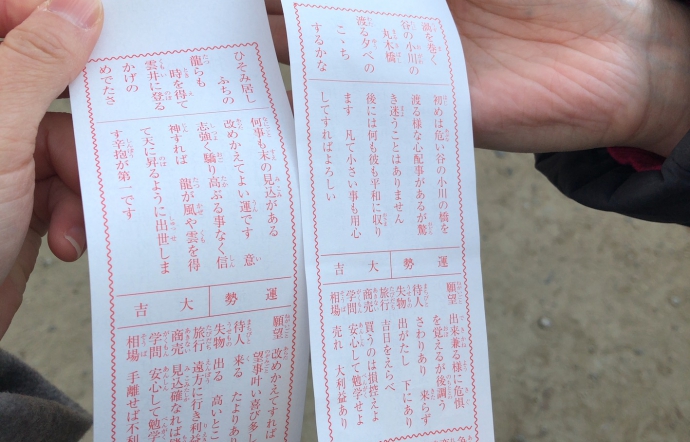 渦を巻く
谷の小川の
丸木橋
渡る夕べの
こゝち
するかな
初めは危い谷の小川の橋を
渡る様な心配事があるが驚
き迷うことはありません
後には何も彼も平和に収り
ます 凡て小さい事も用心
してすればよろしい
運勢 大吉
願望 出来兼る様に危惧
を覚えるが後調う
待人 さわりあり 来らず
失物 出がたし 下にあり
旅行 吉日をえらべ
商売 買うのは損控えよ
学問 安心して勉学せよ
相場 売れ 大利益あり
ひそみ居し
ふちの
龍らも
時を得て
雲井に登る
かげの
めでたさ
何事も末の見込がある
改めかえてよい運です 意
志強く驕り高ぶる事なく信
神すれば 龍が風や雲を得
て天に昇るように出世しま
す辛抱が第一です
運勢 大吉
願望 改めかえてすれば
望事叶い喜び多し
待人 来る たよりあり
失物 出る 高いとこ
旅行 遠方に行き利益
商売 見込確なれば
学問 安心して勉学
相場 手離せば不利